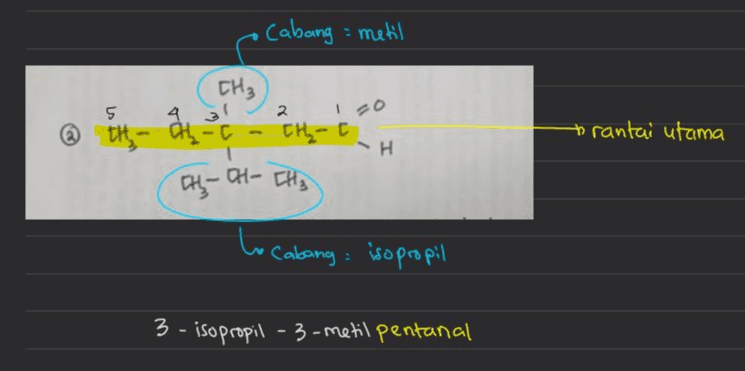 Cabang : metil
CH3
5 4 3 2 1
② CH3 - CH2 - C - CH2 - C =O
H
rantai utama
CH3 - CH - CH3
Cabang : isopropil
3 - isopropil - 3 - metil pentanal